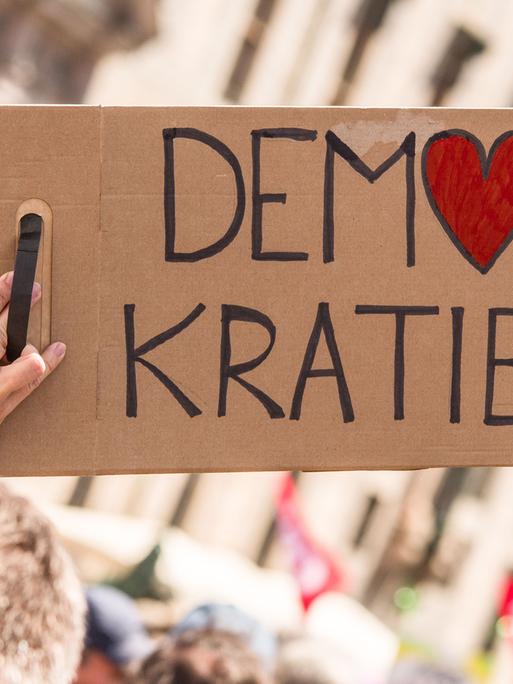 DEM♥
KRATIE